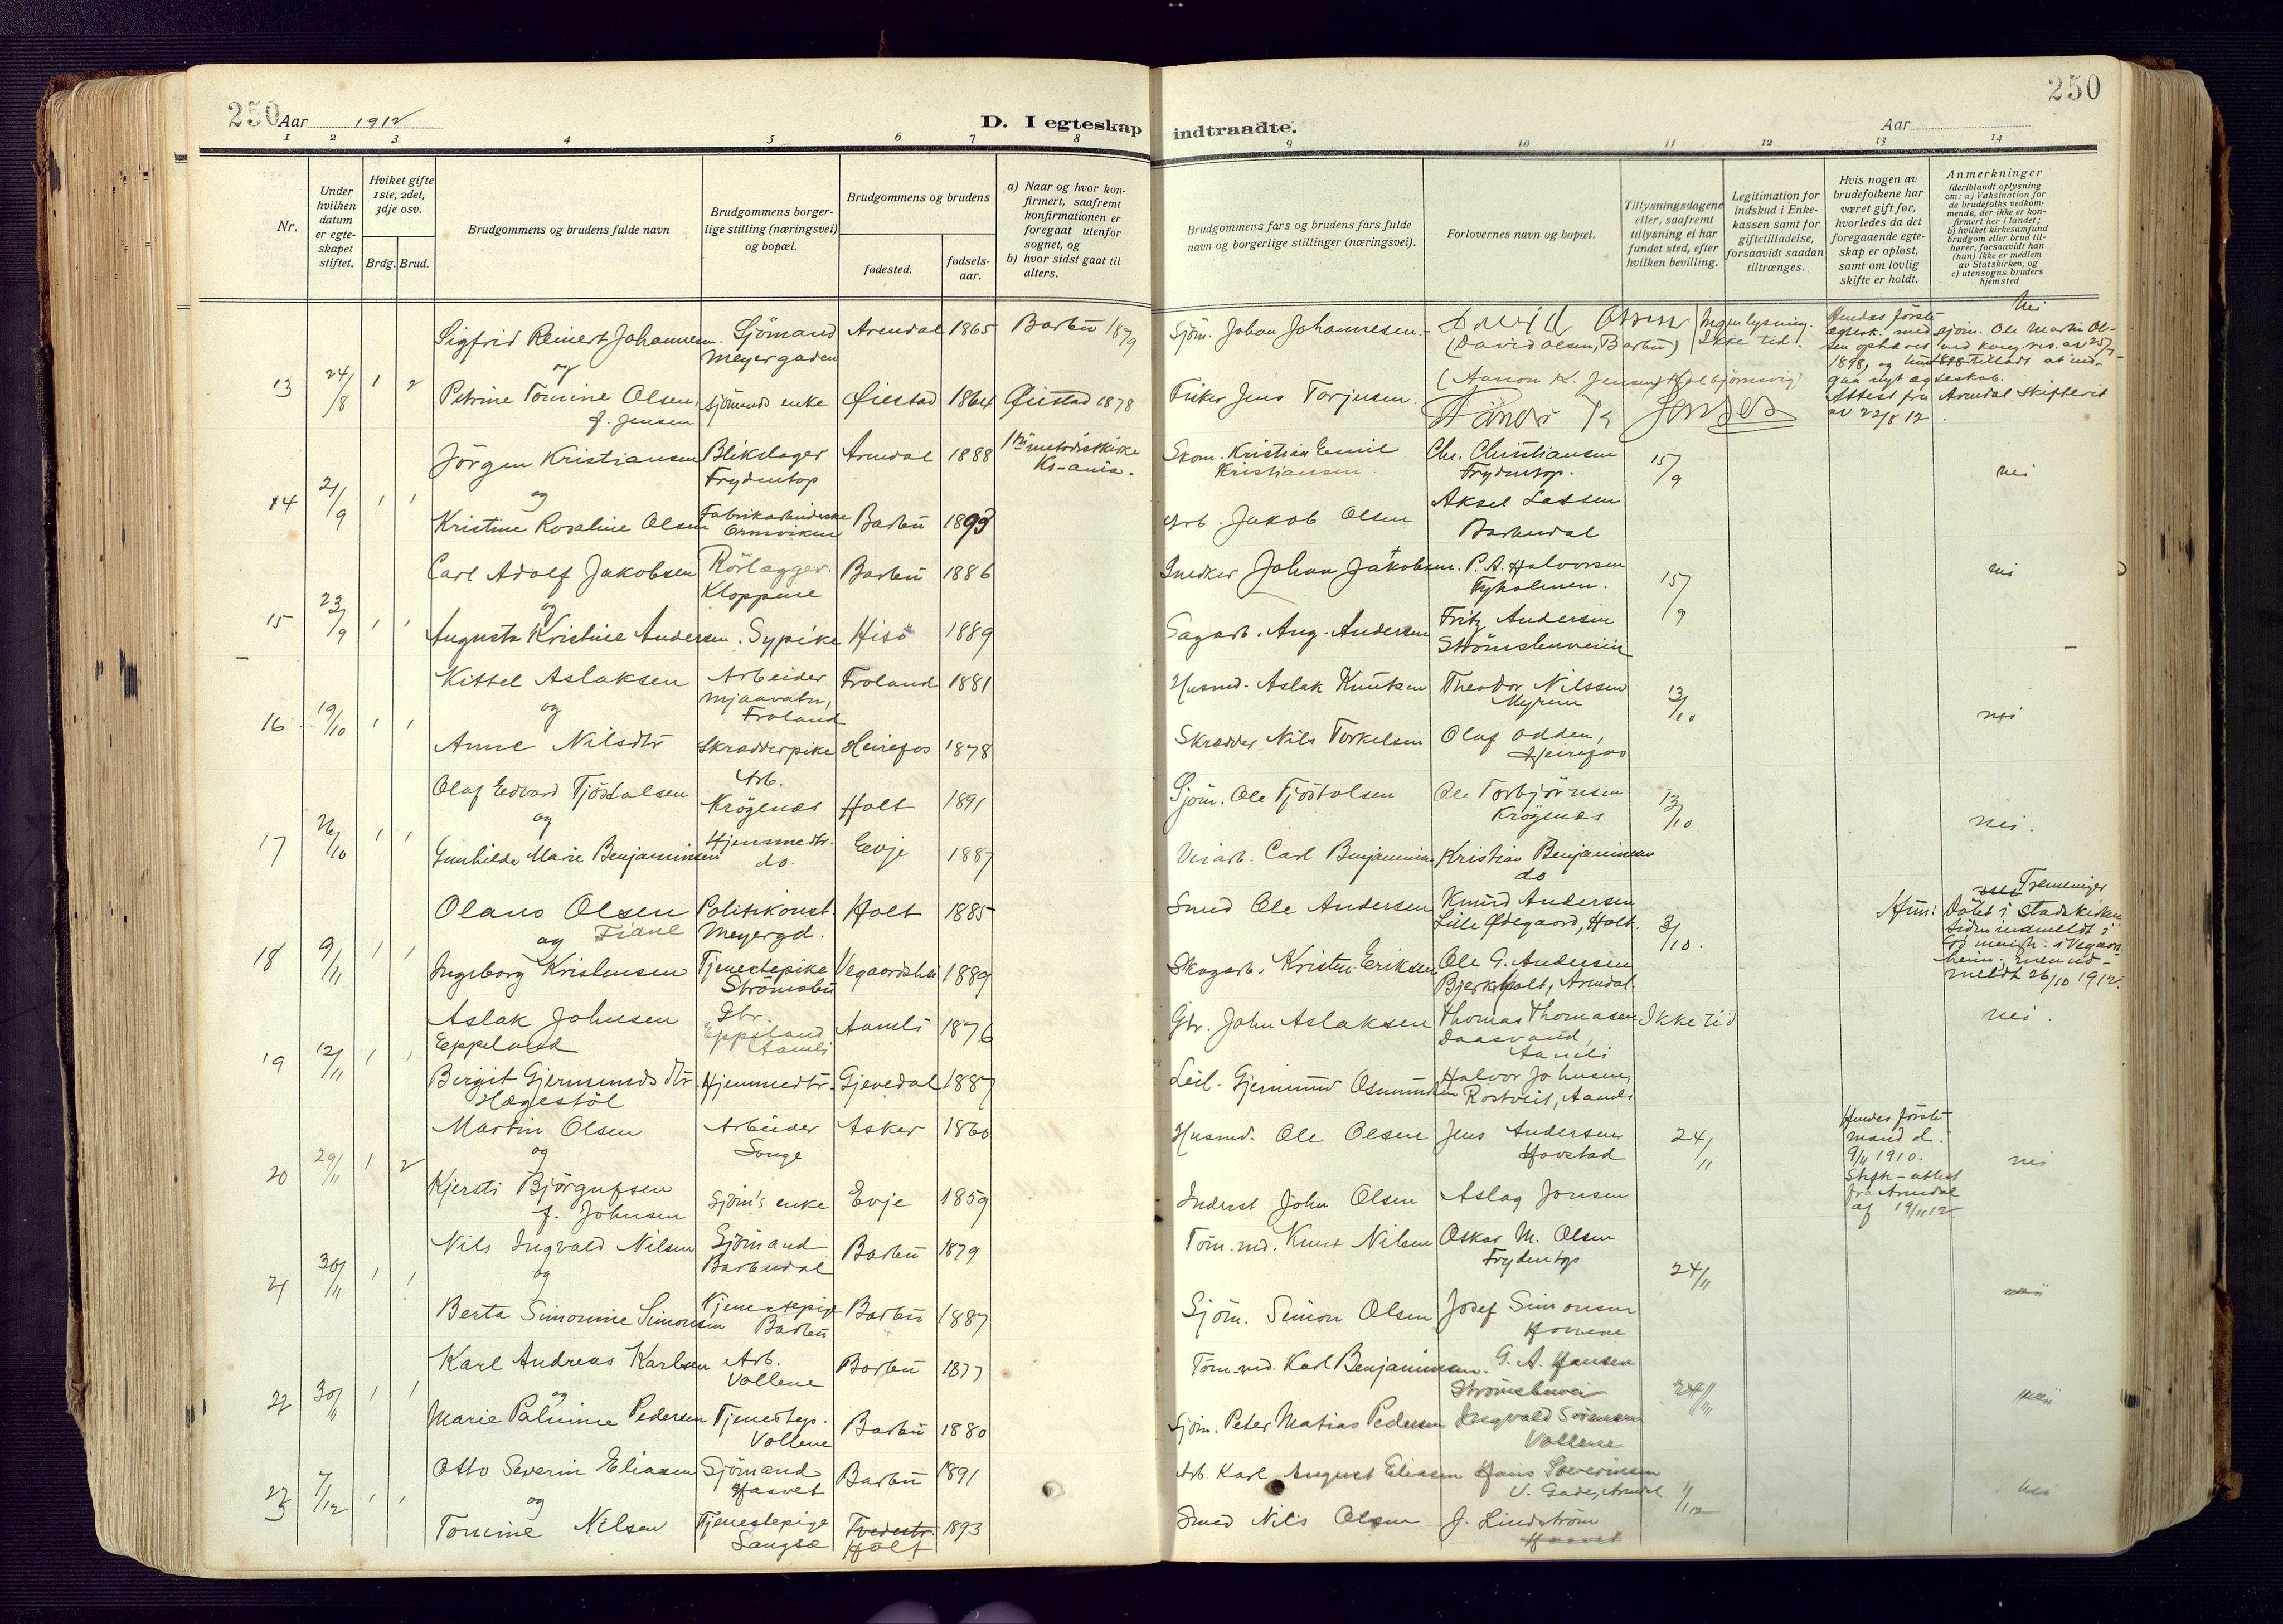 250 Aar 1912
D. I egteskap indtraadte.
Aar
250
1 2 3 4 5 6 7 8 9 10 11 12 13 14
Nr.
Under hvilken datum er egteskapet stiftet.
Hviket gifte 1ste, 2det, 3dje osv.
Brdg. Brud.
Brudgommens og brudens fulde navn
Brudgommens borgerlige stilling (næringsvei) og bopæl.
Brudgommens og brudens
fødested.
fødselsaar.
a) Naar og hvor konfirmert, saafremt konfirmationen er foregaat utenfor sognet, og
b) hvor sidst gaat til alters.
Brudgommens fars og brudens fars fulde navn og borgerlige stillinger (næringsvei).
Forlovernes navn og bopæl.
Tillysningsdagene eller, saafremt tillysning ei har fundet sted, efter hvilken bevilling.
Legitimation for indskud i Enkekassen samt for giftetilladelse, forsaavidt saadan tiltrænges.
Hvis nogen av brudefolkene har været gift før, hvorledes da det foregaaende egteskap er opløst, samt om lovlig skifte er holdt.
Anmerkninger (deriblandt oplysning om: a) Vaksination for de brudefolks vedkommende, der ikke er konfirmert her i landet; b) hvilket kirkesamfund brudgom eller brud tilhører, forsaavidt han (hun) ikke er medlem av Statskirken, og c) utensogns bruders hjemsted
13 24/8 1 2
Sigfrid Reinert Johannesen Sjömand Meyergaden Arendal 1865 Barbu 1879 Sjöm. Johan Johannesen David Olsen (David Olsen, Barbu) Ingen lysning. Ikke tid. nei
og
Petrine Tomine Olsen, f. Jensen sjömands enke Øiestad 1864 Øiestad 1878 Fisker Jens Torjusen (Aanon K. Jensen, Kolbjörnsvig)
Hendes förste egtesk. med sjöm. Ole Martin Olsen ophævet ved kong. res. av 25/7 1898, og tilladt at indgaa nyt egteskab.
Attest fra Arendal Skifteret av 22/8 12
14 21/9 1 1
Jörgen Kristiansen Blikslager Frydentop Arendal 1888 metodistkirke Kr-ania. Skom. Kristian Emil Kristiansen Chr. Christiansen Frydentop. 15/9 nei
og
Kristine Rosaline Olsen Fabrikarbeiderske Barbu 1893 Arb. Jakob Olsen Aksel Lassen Barbudal
15 23/9 1 1
Carl Adolf Jakobsen Rörlægger Kloppene Barbu 1886 Snedker Johan Jakobsen P. A. Halvorsen Tyholmen. 15/9 nei
og
Augusta Kristine Andersen Sypike Hisö 1889 Sagarb. Aug. Andersen Fritz Andersen Strömsbuveien
16 19/10 1 1
Kittel Aslaksen Arbeider Mjaavatn, Froland Froland 1881 Husmd. Aslak Knutsen Theodor Nilssen Myrene 13/10 nei
og
Anne Nilsdtr Skrædderpike Heirefos 1878 Skrædder Nils Torkelsen Olaf Odden, Heirefos
17 26/10 1 1
Olaf Edvard Tjöstolsen Arb. Krögenæs Holt 1891 Sjöm. Ole Tjöstolsen Ole Torbjörnsen Krögenæs 13/10 nei.
og
Gunhilde Marie Benjaminsen Hjemmedtr. do. Evje 1887 Veiarb. Carl Benjaminsen Kristian Benjaminsen do
18 9/11 1 1
Olaus Olsen Fiane Politikonst. Meyergd. Holt 1885 Smed Ole Andersen Knud Andersen Lille Ødegaard, Holt. 3/10.
og
Ingeborg Kristensen Tjenestepike Strömsbu Vegaardshei 1889 Skogarb. Kristen Eriksen Ole G. Andersen Bjerkholt, Arendal
Hun: Döbt i Statskirken, siden indmeldt i menigh. i Vegaardsheien, men udmeldt 26/10 1912.
19 12/11 1 1
Aslak Johnsen Eppeland Gbr. Eppeland Aamli Aamli 1876 Gbr. John Aslaksen Thomas Thomasen Daasvand, Aamli Ikke tid nei.
Birgit Gjermunds dtr. Hægestöl Hjemmedtr. Gjevedal 1887 Leil. Gjermund Osmundsen Halvor Johnsen, Rostveit, Aamli
20 29/11 1 2
Martin Olsen Arbeider Songe Asker 1860 Husmd. Ole Olsen Jens Andersen Havstad 24/11 nei
og
Kjersti Björgufsen f. Johnsen Sjöm's enke Evje 1859 Inderst John Olsen Aslag Jonsen
Hendes förste mand d. 9/11 1910. Skifteattest fra Arendal af 19/11 12
21 30/11 1 1
Nils Ingvald Nilsen Sjömand Barbudal Barbu 1879 Töm.md. Knut Nilsen Oskar M. Olsen Frydentop 24/11 nei
og
Berta Simonine Simonsen Tjenestepige Barbu Barbu 1887 Sjöm. Simon Olsen Josef Simonsen
22 30/11 1 1
Karl Andreas Karlsen Arb. Vollene Barbu 1877 Töm.md. Karl Benjaminsen G. A. Hansen Strömsbuvei 24/11 nei
og
Marie Palmine Pedersen Tjenestep. Vollene Barbu 1880 Sjöm. Peter Matias Pedersen Ingvald Sörensen Vollene
23 7/12 1 1
Otto Severin Eliasen Sjömand Barbu 1891 Arb. Karl August Eliasen Hans Severinsen V. Gade, Arendal 1/12 nei
og
Tomine Nilsen Tjenestepige Langsæ Tvedestr. Holt 1893 Smed Nils Olsen J. Lindström